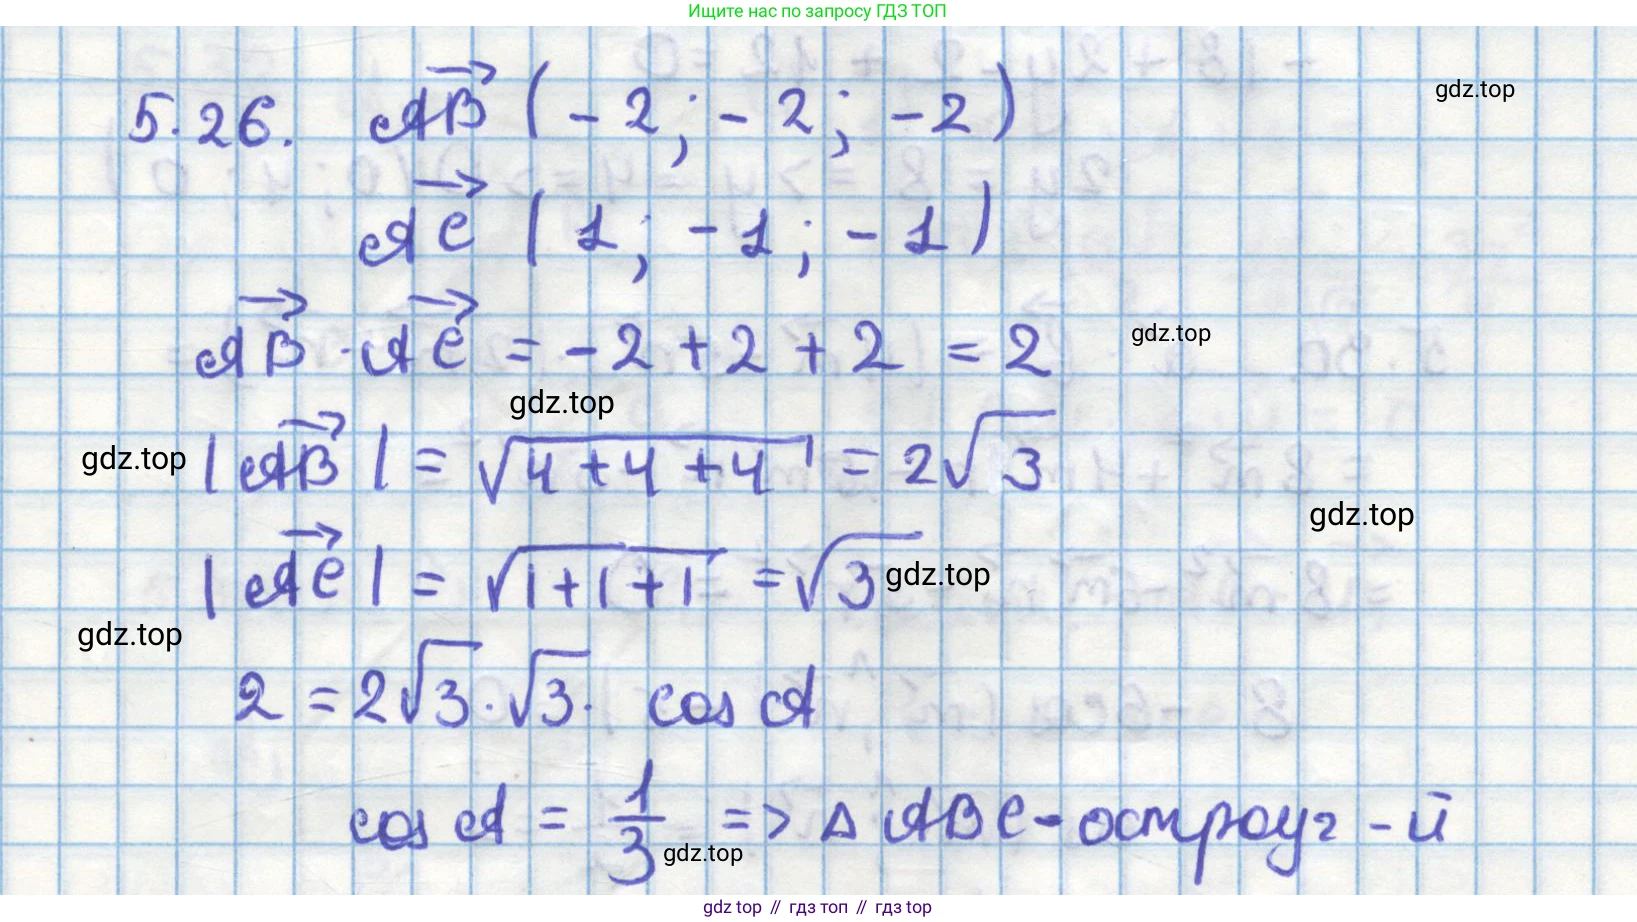 Ищите нас по запросу ГДЗ ТОП
5.26. AB→ (-2; -2; -2)
gdz.top
AC→ (1; -1; -1)
AB→ · AC→ = -2 + 2 + 2 = 2
gdz.top
gdz.top
gdz.top
|AB→| = √(4+4+4) = 2√3
gdz.top
|AC→| = √(1+1+1) = √3
gdz.top
gdz.top
2 = 2√3 · √3 · cos A
cos A = 1/3 => Δ ABC - остроуг-й
gdz.top
gdz top // гдз топ // гдз top